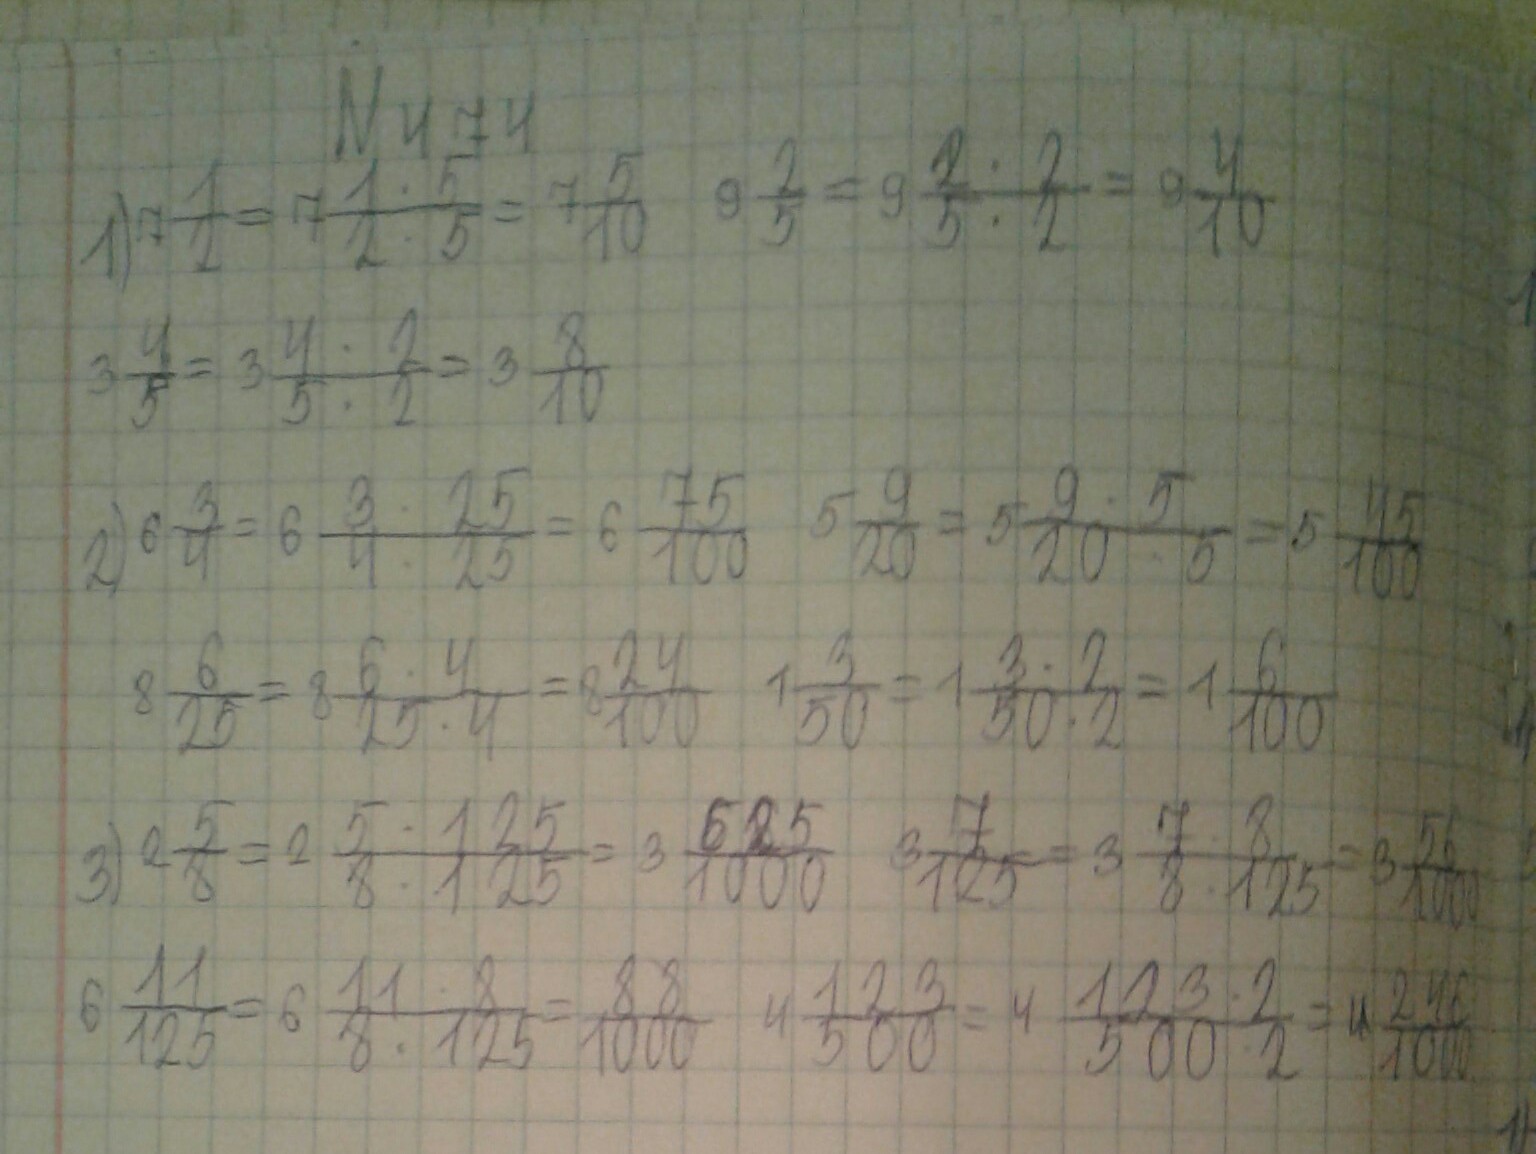 N 474
1) 7 1/2 = 7 1·5/2·5 = 7 5/10   9 2/5 = 9 2·2/5·2 = 9 4/10
3 4/5 = 3 4·2/5·2 = 3 8/10
2) 6 3/4 = 6 3·25/4·25 = 6 75/100   5 9/20 = 5 9·5/20·5 = 5 45/100
8 6/25 = 8 6·4/25·4 = 8 24/100   1 3/50 = 1 3·2/50·2 = 1 6/100
3) 2 5/8 = 2 5·125/8·125 = 3 625/1000   3 7/125 = 3 7·8/8·125 = 3 56/1000
6 11/125 = 6 11·8/8·125 = 88/1000   4 123/500 = 4 123·2/500·2 = 4 246/1000